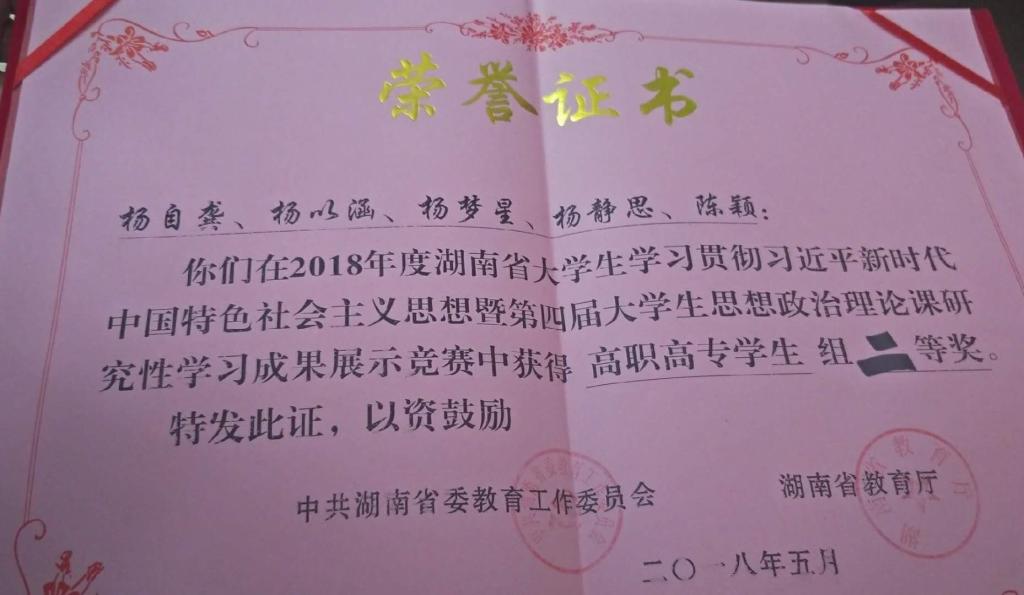 荣誉证书
杨自龚、杨以涵、杨梦星、杨静思、陈颖：
你们在2018年度湖南省大学生学习贯彻习近平新时代
中国特色社会主义思想暨第四届大学生思想政治理论课研
究性学习成果展示竞赛中获得 高职高专学生 组 二 等奖。
特发此证，以资鼓励
中共湖南省委教育工作委员会 湖南省教育厅
二〇一八年五月